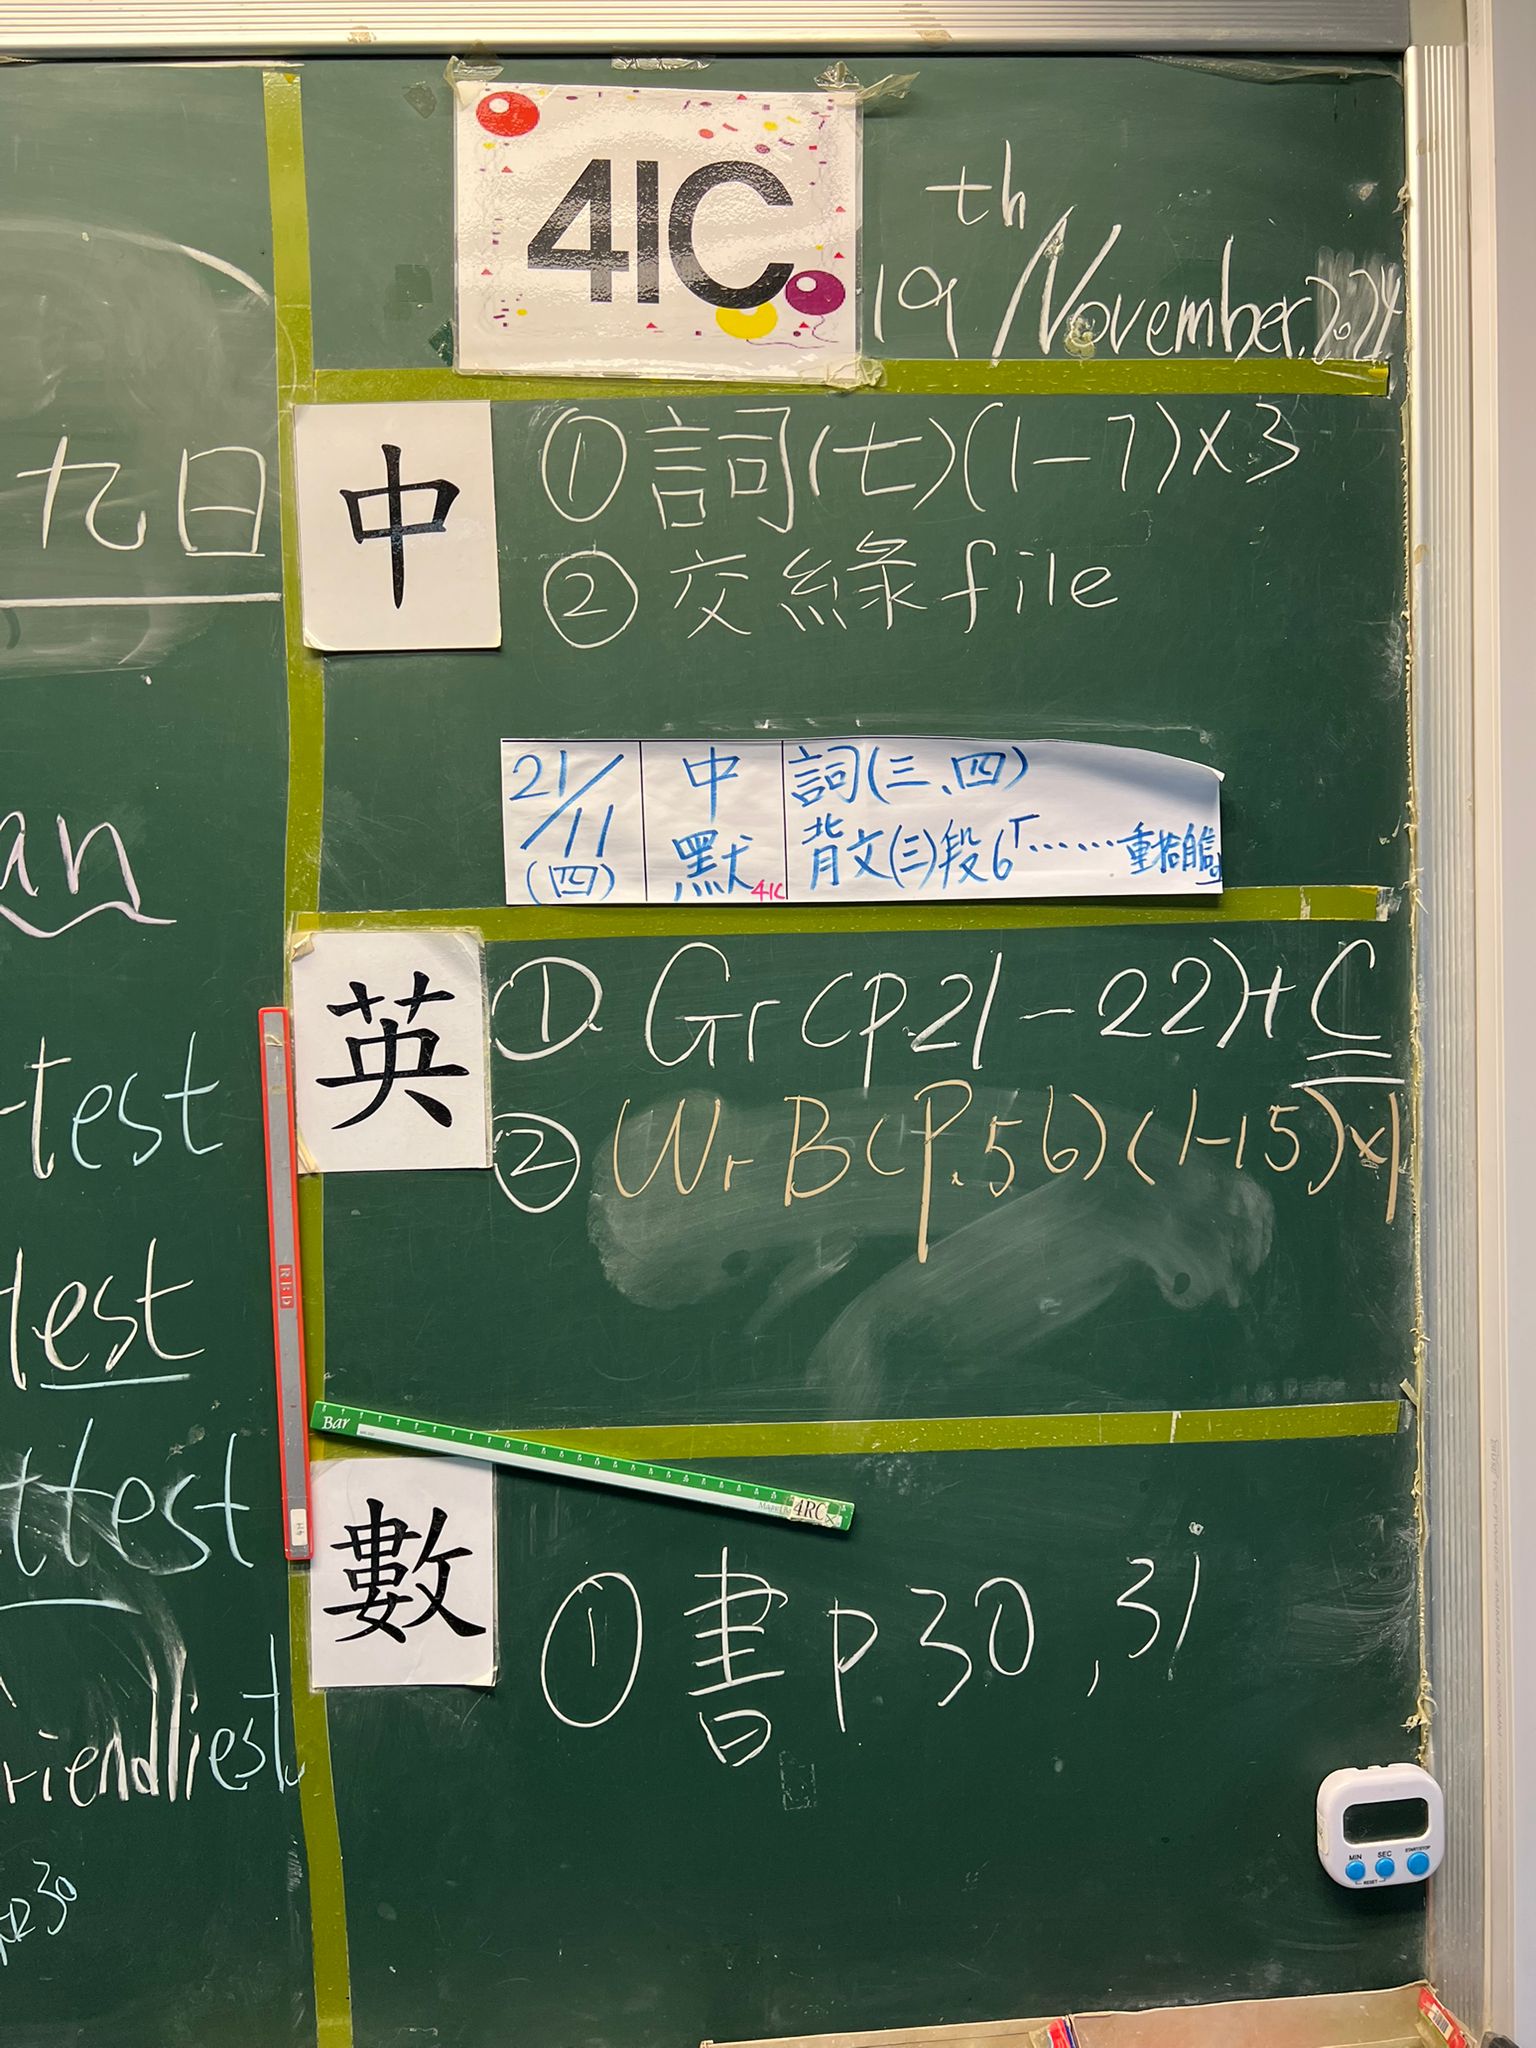 41C
19th November, 2024
九日
中
① 詞(七)(1-7)×3
② 交綠file
21/11
(四)
中
默
41C
詞(三、四)
背文(三)段6「……重拾自信」
an
英
① Gr (p.21-22)+C
② Wr B (P.56) (1-15)×1
test
test
ttest
riendliest
RED
Bar
4RC
數
① 書 p30, 31
30
MIN
SEC
START/STOP
RESET